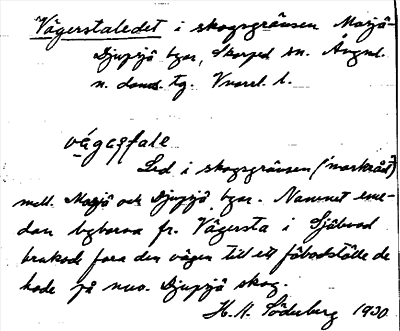 Vägerstaledet i skogsgränsen Mosjö-
Djupsjö byar, Skorped sn. Ångml.
n. doms. tg. Vnorrl. l.
Led i skogsgränsen (markråd)
mell. Mosjö och Djupsjö byar. Namnet eme-
dan byborna fr. Vägersta i Själevad
brukade fara den vägen till ett fäbodställe de
hade på nuv. Djupsjö skog.
H. A. Söderberg 1930.